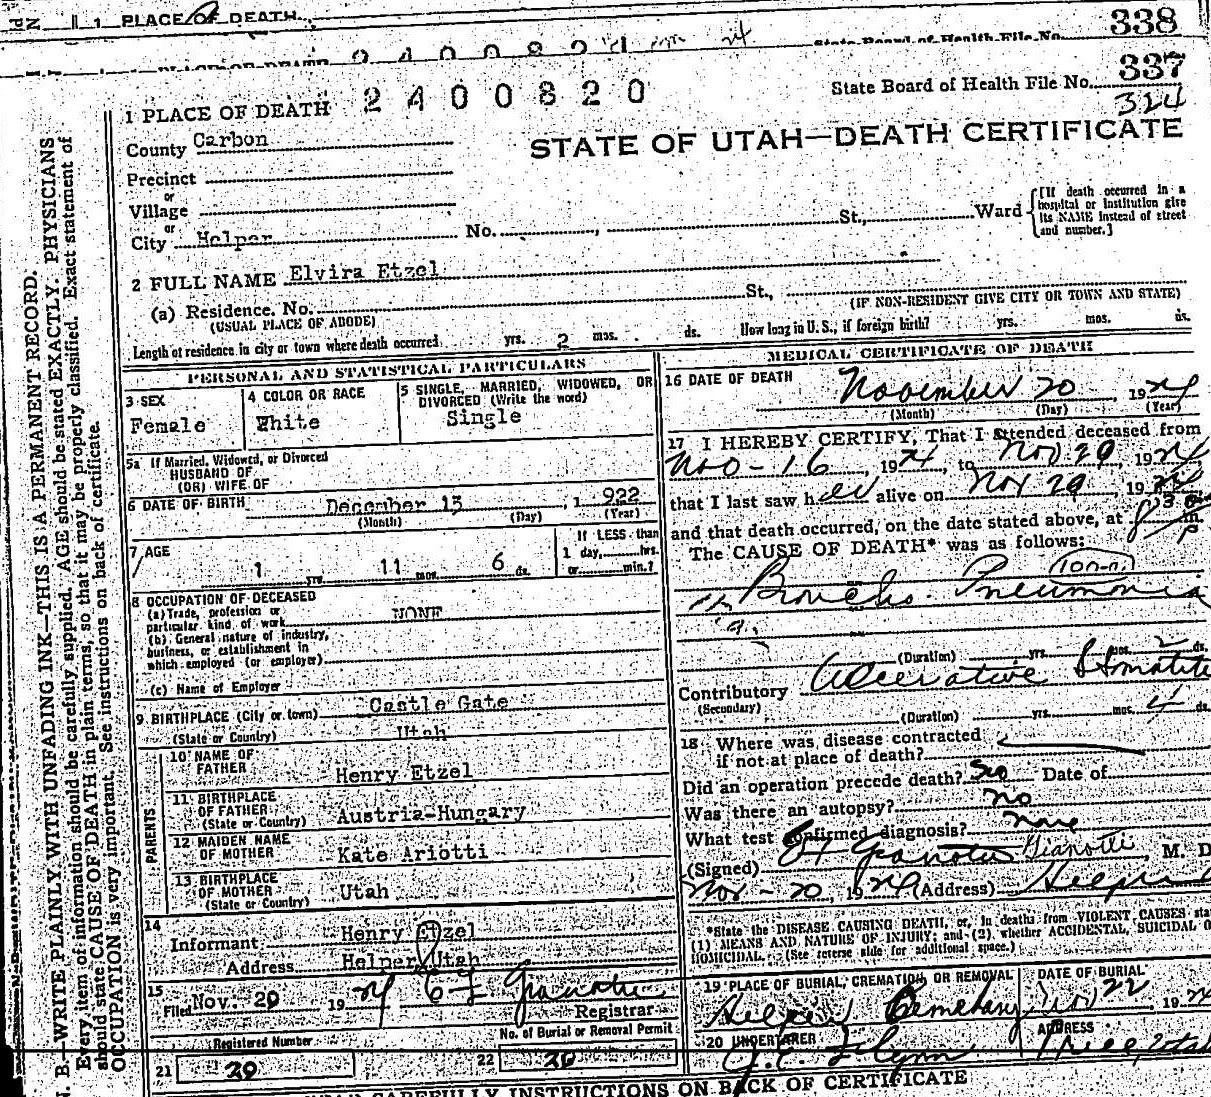 1 PLACE OF DEATH
338
State Board of Health File No.
1 PLACE OF DEATH 2400820
State Board of Health File No. 337
324
STATE OF UTAH—DEATH CERTIFICATE
County Carbon
Precinct
or
Village
or
City Helper No. , St., Ward
[If death occurred in a hospital or institution give its NAME instead of street and number.]
2 FULL NAME Elvira Etzel
(a) Residence. No. St.,
(USUAL PLACE OF ABODE) (IF NON-RESIDENT GIVE CITY OR TOWN AND STATE)
Length of residence in city or town where death occurred yrs. 2 mos. ds. How long in U.S., if foreign birth? yrs. mos. ds.
PERSONAL AND STATISTICAL PARTICULARS
3 SEX
Female
4 COLOR OR RACE
White
5 SINGLE, MARRIED, WIDOWED, OR
DIVORCED (Write the word)
Single
5a If Married, Widowed, or Divorced
HUSBAND OF
(OR) WIFE OF
6 DATE OF BIRTH December 15, 1922
(Month) (Day) (Year)
7 AGE
1 yrs. 11 mos. 6 ds.
If LESS than
1 day, hrs.
or min.?
8 OCCUPATION OF DECEASED
(a) Trade, profession or
particular kind of work NONE
(b) General nature of industry,
business, or establishment in
which employed (or employer)
(c) Name of Employer
9 BIRTHPLACE (City or town) Castle Gate
(State or Country) Utah
PARENTS
10 NAME OF
FATHER Henry Etzel
11 BIRTHPLACE
OF FATHER
(State or Country) Austria-Hungary
12 MAIDEN NAME
OF MOTHER Kate Ariotti
13 BIRTHPLACE
OF MOTHER
(State or Country) Utah
14
Informant Henry Etzel
Address Helper Utah
15
Filed Nov. 20 1924
Registrar
Registered Number
21 20
No. of Burial or Removal Permit
22 20
MEDICAL CERTIFICATE OF DEATH
16 DATE OF DEATH
November 20, 1924
(Month) (Day) (Year)
17 I HEREBY CERTIFY, That I attended deceased from
Nov-16, 1924, to Nov 20, 1924
that I last saw her alive on Nov 20, 1924
and that death occurred, on the date stated above, at 830 P m.
The CAUSE OF DEATH* was as follows:
Broncho-Pneumonia
(Duration) yrs. mos. 2 ds.
Contributory Ulcerative Stomatitis
(Secondary)
(Duration) yrs. mos. 4 ds.
18 Where was disease contracted
if not at place of death?
Did an operation precede death? no Date of
Was there an autopsy? no
What test confirmed diagnosis? none
(Signed) Gianotti, M. D.
Nov-20, 1924 (Address) Helper
*State the DISEASE CAUSING DEATH, or, in deaths from VIOLENT CAUSES sta
(1) MEANS AND NATURE OF INJURY; and (2) whether ACCIDENTAL, SUICIDAL O
HOMICIDAL. (See reverse side for additional space.)
19 PLACE OF BURIAL, CREMATION OR REMOVAL
Helper Cemetery
DATE OF BURIAL
Nov 22 1924
20 UNDERTAKER
J. E. Flynn
ADDRESS
Price Utah
CAREFULLY INSTRUCTIONS ON BACK OF CERTIFICATE
N. B.—WRITE PLAINLY, WITH UNFADING INK—THIS IS A PERMANENT RECORD.
Every item of information should be carefully supplied. AGE should be stated EXACTLY. PHYSICIANS
should state CAUSE OF DEATH in plain terms, so that it may be properly classified. Exact statement of
OCCUPATION is very important. See instructions on back of certificate.